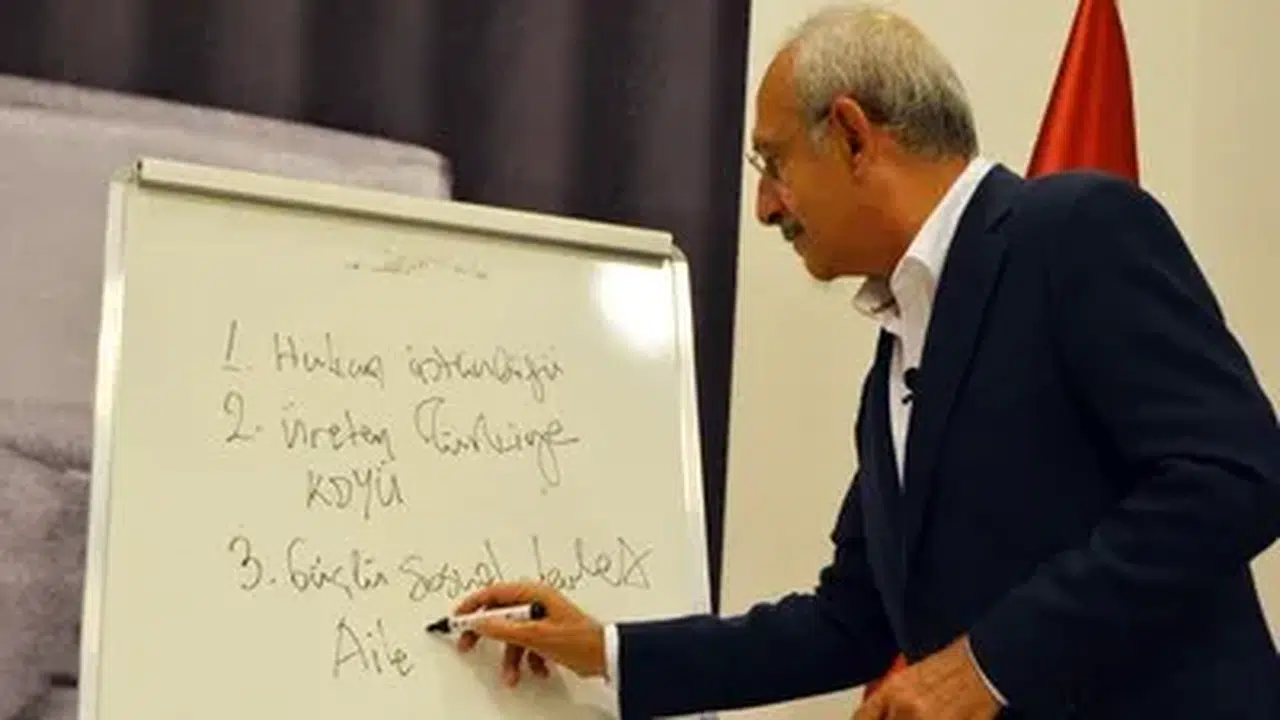 1. Hukuk üstünlüğü
2. Üreten Türkiye
KÖYÜ
3. Güçlü Sosyal devlet
Aile